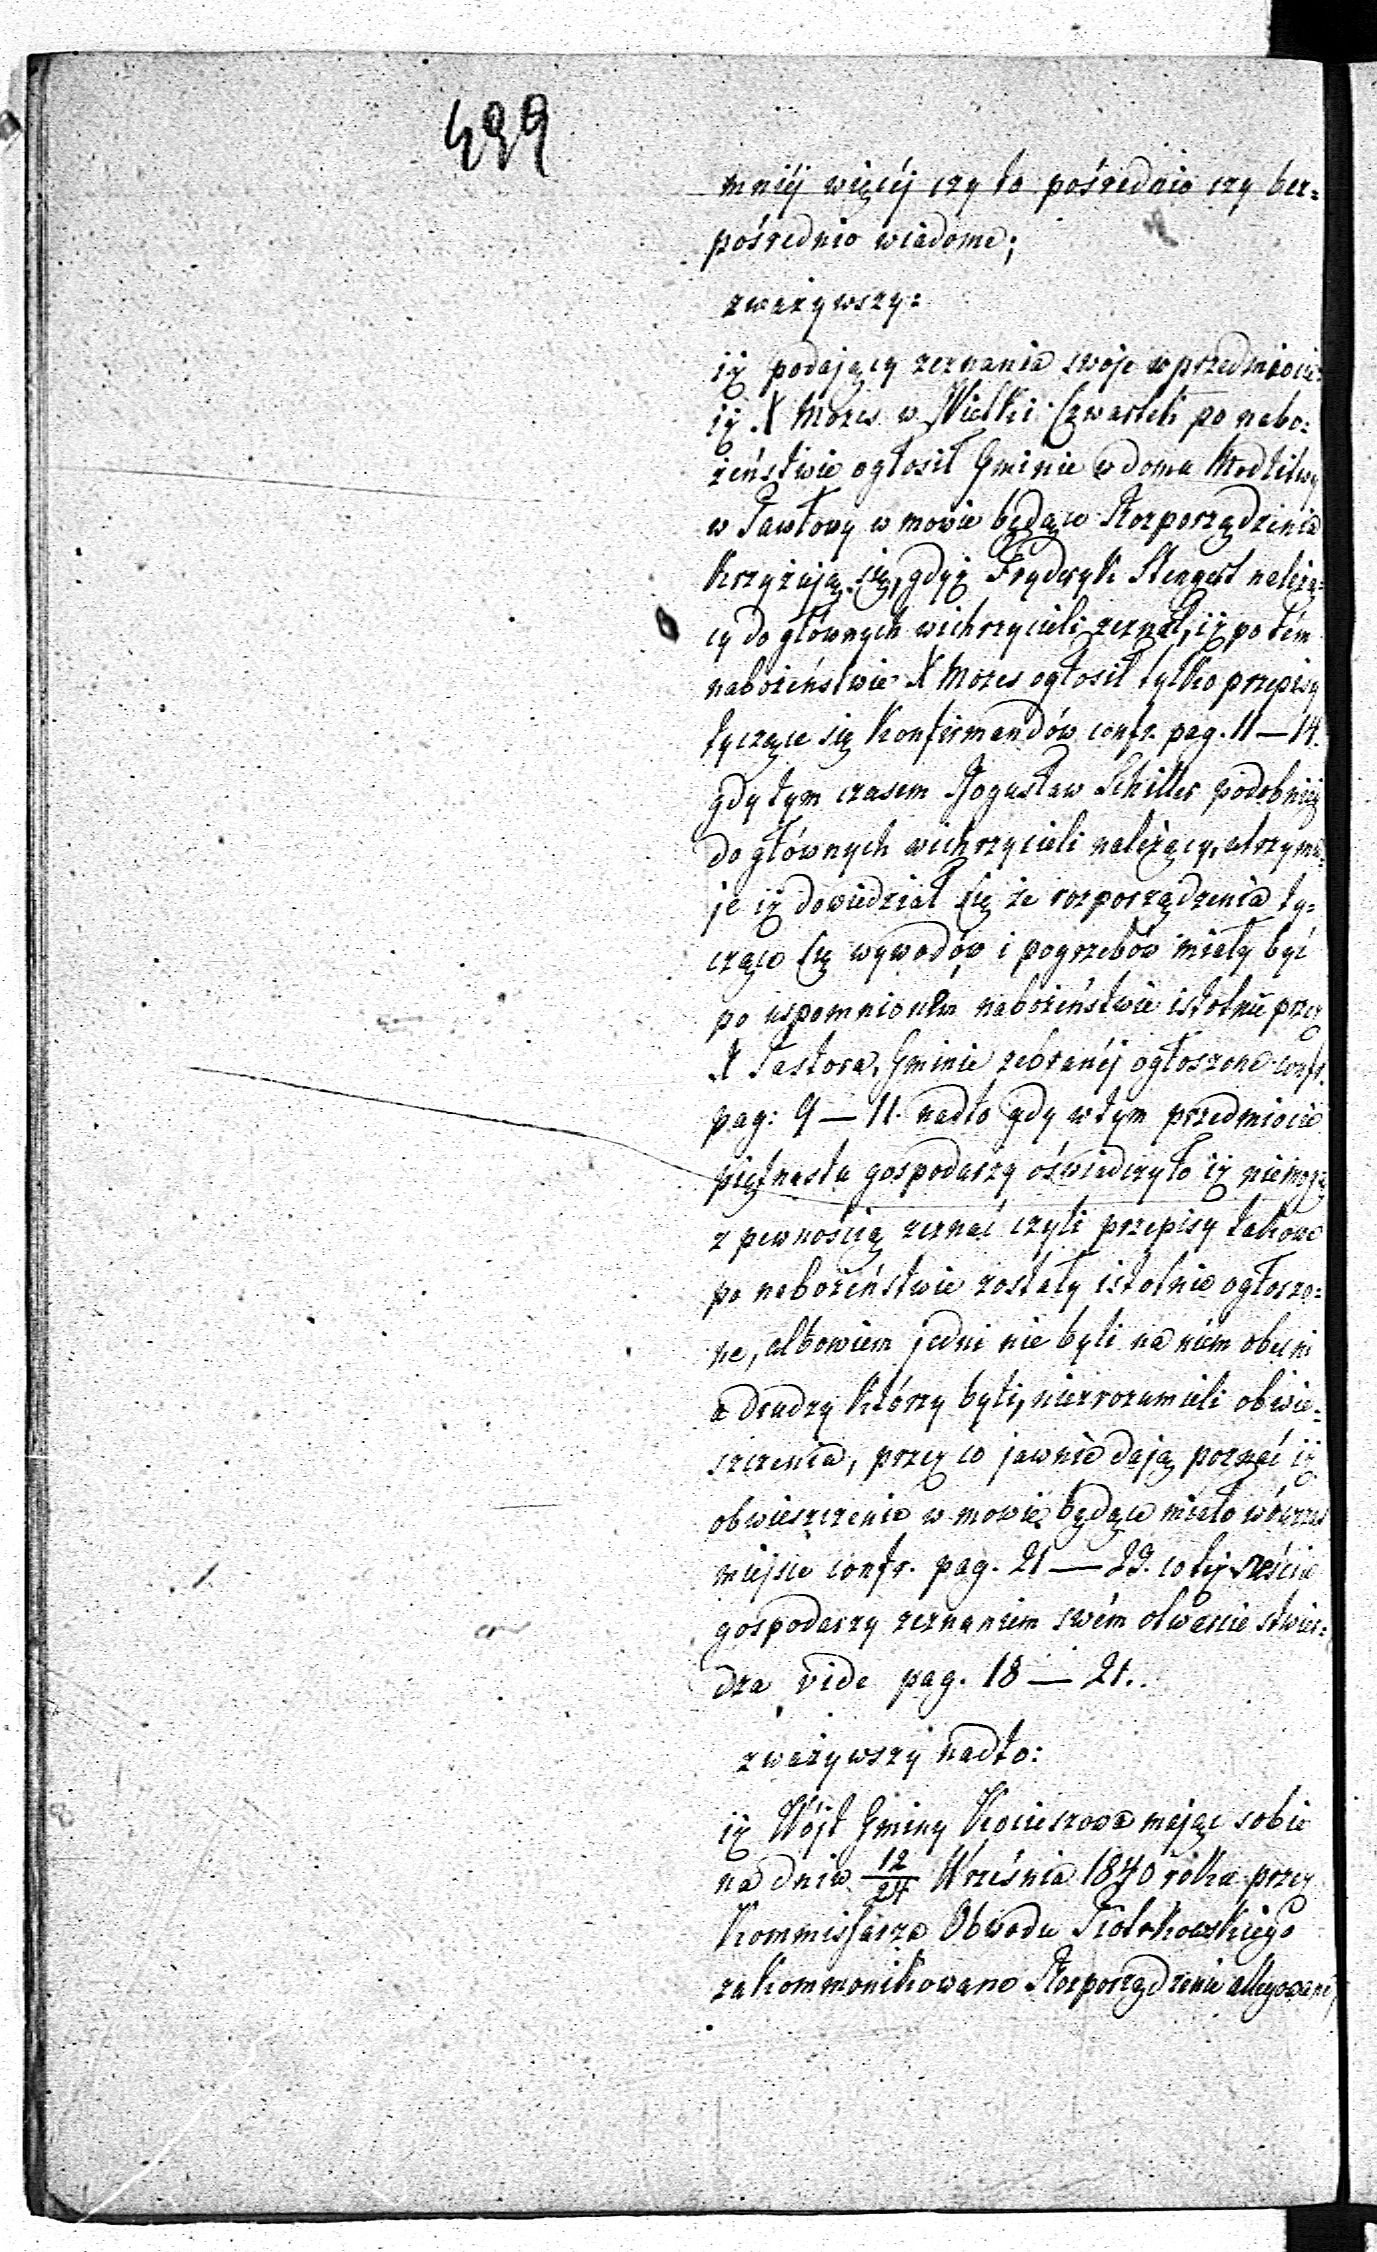 499
mniéj więcéj czy to pośrednio czy bez=
pośrednio wiadome;
zważywszy:
iż podający zeznania swoje w przedmiocie
iż X Mozes w Wielki Czwartek po nabo=
żeństwie ogłosił Gminie w domu Modlitwy
w Pawłowy w mowie będące Rozporządzenia
krzyżują się, gdyż Fryderyk Stengert należą=
cy do głównych wichrzycieli zeznał, iż po tém
nabożeństwie X Mozes ogłosił tylko przepisy
tyczące się Konfirmandów confr. pag. 11 — 14.
gdy tym czasem Bogusław Schiller podobnież
do głównych wichrzycieli należący, utrzymu=
je iż dowiedział się że rozporządzenia ty=
czące się wywodów i pogrzebów miały być
po uspomnionem nabożeństwie istotnie przez
X Pastora, Gminie zebranéj ogłoszone confr.
pag: 9 — 11. nadto gdy w tym przedmiocie
piętnastu gospodarzy oświadczyło iż niemogą
z pewnością zeznać czyli przepisy takowe
po nabożeństwie zostały istotnie ogłoszo=
ne, albowiem jedni nie byli na niém obecni
a drudzy którzy byli, niezrozumieli obwie=
szczenia, przez co jawnie dają poznać iż
obwieszczenie w mowie będące miało wówczas
miejsce confr. pag. 21 — 29. co też sześciu
gospodarzy zeznaniem swém otwarcie stwier=
dza vide pag. 18 — 21.
zważywszy nadto:
iż Wójt Gminy Kocieszowa mając sobie
na dniu 12/24 Września 1840 roku przez
Kommissarza Obwodu Piotrkowskiego
zakommonikowane Rozporządzenie allegowane,